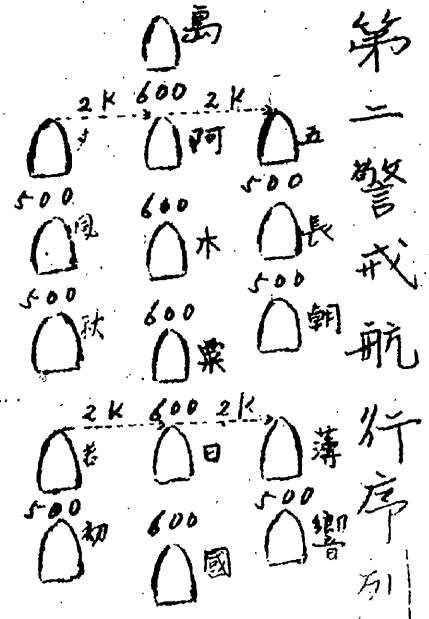 第二警戒航行序列
島
2K 600 2K
夕 阿 五
500 600 500
風 木 長
500 600 500
秋 粟 朝
2K 600 2K
若 日 薄
500 600 500
初 國 響